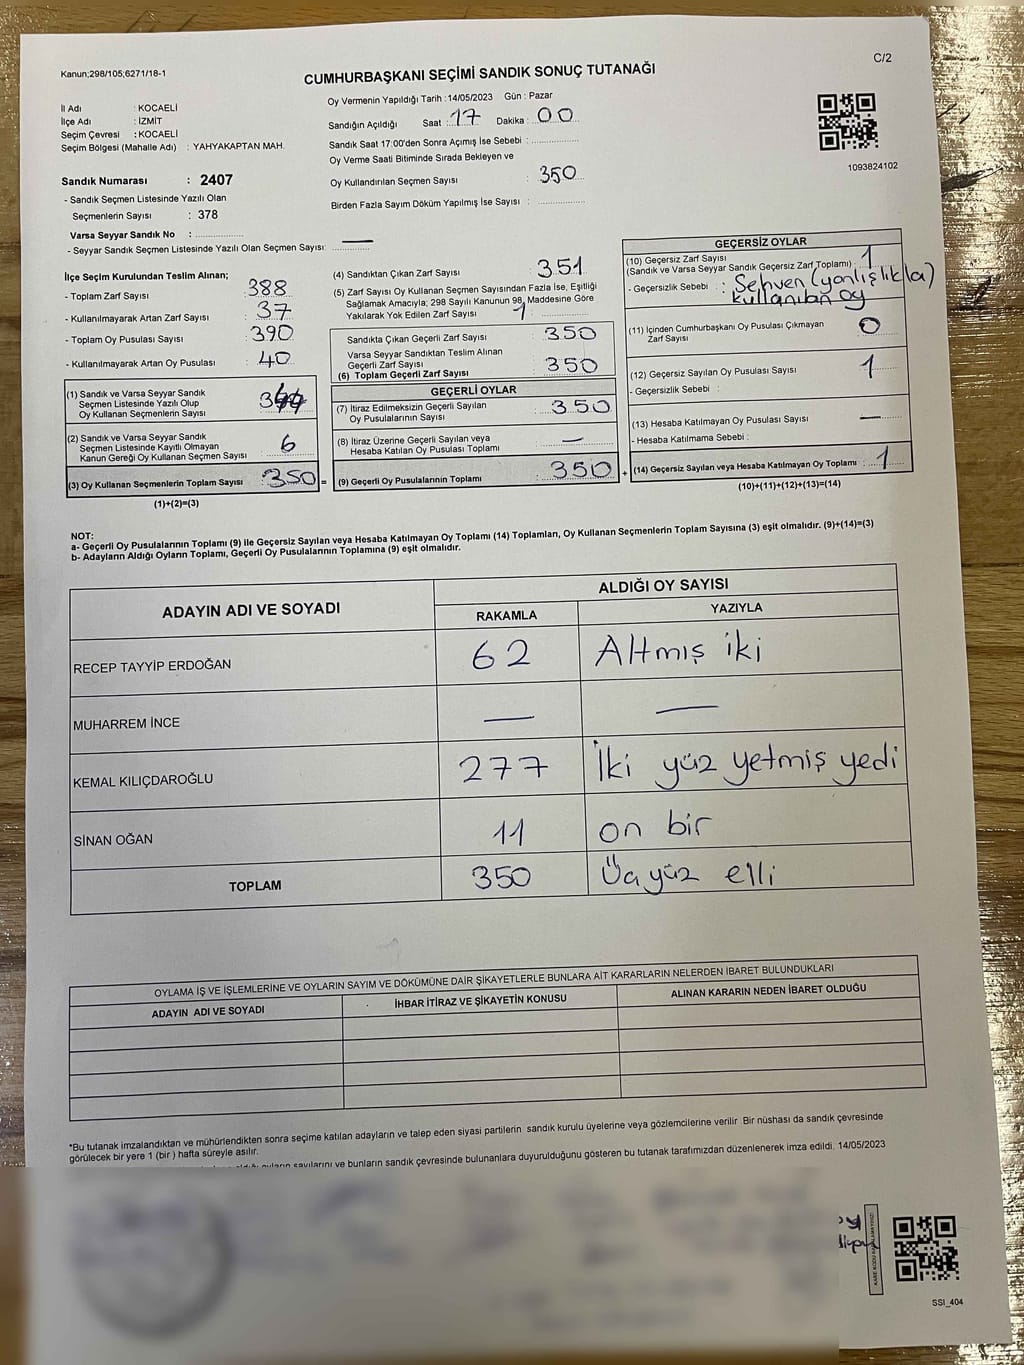 Kanun;298/105;6271/18-1
C/2
CUMHURBAŞKANI SEÇİMİ SANDIK SONUÇ TUTANAĞI
İl Adı : KOCAELİ
İlçe Adı : İZMİT
Seçim Çevresi : KOCAELİ
Seçim Bölgesi (Mahalle Adı) : YAHYAKAPTAN MAH.
Sandık Numarası : 2407
- Sandık Seçmen Listesinde Yazılı Olan
Seçmenlerin Sayısı : 378
Varsa Seyyar Sandık No :
- Seyyar Sandık Seçmen Listesinde Yazılı Olan Seçmen Sayısı: —
Oy Vermenin Yapıldığı Tarih : 14/05/2023 Gün : Pazar
Sandığın Açıldığı Saat : 17 Dakika : 00
Sandık Saat 17:00'den Sonra Açımış İse Sebebi :
Oy Verme Saati Bitiminde Sırada Bekleyen ve
Oy Kullandırılan Seçmen Sayısı : 350
Birden Fazla Sayım Döküm Yapılmış İse Sayısı :
1093824102
İlçe Seçim Kurulundan Teslim Alınan;
- Toplam Zarf Sayısı : 388
- Kullanılmayarak Artan Zarf Sayısı : 37
- Toplam Oy Pusulası Sayısı : 390
- Kullanılmayarak Artan Oy Pusulası : 40
(1) Sandık ve Varsa Seyyar Sandık
Seçmen Listesinde Yazılı Olup
Oy Kullanan Seçmenlerin Sayısı
(2) Sandık ve Varsa Seyyar Sandık
Seçmen Listesinde Kayıtlı Olmayan
Kanun Gereği Oy Kullanan Seçmen Sayısı : 6
(3) Oy Kullanan Seçmenlerin Toplam Sayısı : 350 =
(1)+(2)=(3)
(4) Sandıktan Çıkan Zarf Sayısı : 351
(5) Zarf Sayısı Oy Kullanan Seçmen Sayısından Fazla İse, Eşitliği
Sağlamak Amacıyla; 298 Sayılı Kanunun 98. Maddesine Göre
Yakılarak Yok Edilen Zarf Sayısı : 1
Sandıkta Çıkan Geçerli Zarf Sayısı : 350
Varsa Seyyar Sandıktan Teslim Alınan
Geçerli Zarf Sayısı
(6) Toplam Geçerli Zarf Sayısı : 350
GEÇERLİ OYLAR
(7) İtiraz Edilmeksizin Geçerli Sayılan
Oy Pusulalarının Sayısı : 350
(8) İtiraz Üzerine Geçerli Sayılan veya
Hesaba Katılan Oy Pusulası Toplamı : —
(9) Geçerli Oy Pusulalarının Toplamı : 350 +
GEÇERSİZ OYLAR
(10) Geçersiz Zarf Sayısı
(Sandık ve Varsa Seyyar Sandık Geçersiz Zarf Toplamı) : 1
- Geçersizlik Sebebi : Sehven (yanlışlıkla)
kullanılan oy
(11) İçinden Cumhurbaşkanı Oy Pusulası Çıkmayan
Zarf Sayısı : 0
(12) Geçersiz Sayılan Oy Pusulası Sayısı : 1
- Geçersizlik Sebebi :
(13) Hesaba Katılmayan Oy Pusulası Sayısı : —
- Hesaba Katılmama Sebebi :
(14) Geçersiz Sayılan veya Hesaba Katılmayan Oy Toplamı : 1
(10)+(11)+(12)+(13)=(14)
NOT:
a- Geçerli Oy Pusulalarının Toplamı (9) ile Geçersiz Sayılan veya Hesaba Katılmayan Oy Toplamı (14) Toplamları, Oy Kullanan Seçmenlerin Toplam Sayısına (3) eşit olmalıdır. (9)+(14)=(3)
b- Adayların Aldığı Oyların Toplamı, Geçerli Oy Pusulalarının Toplamına (9) eşit olmalıdır.
ADAYIN ADI VE SOYADI ALDIĞI OY SAYISI
RAKAMLA YAZIYLA
RECEP TAYYİP ERDOĞAN 62 Altmış iki
MUHARREM İNCE — —
KEMAL KILIÇDAROĞLU 277 İki yüz yetmiş yedi
SİNAN OĞAN 11 on bir
TOPLAM 350 Üçyüz elli
OYLAMA İŞ VE İŞLEMLERİNE VE OYLARIN SAYIM VE DÖKÜMÜNE DAİR ŞİKAYETLERLE BUNLARA AİT KARARLARIN NELERDEN İBARET BULUNDUKLARI
ADAYIN ADI VE SOYADI İHBAR İTİRAZ VE ŞİKAYETİN KONUSU ALINAN KARARIN NEDEN İBARET OLDUĞU
*Bu tutanak imzalandıktan ve mühürlendikten sonra seçime katılan adayların ve talep eden siyasi partilerin sandık kurulu üyelerine veya gözlemcilerine verilir Bir nüshası da sandık çevresinde
görülecek bir yere 1 (bir ) hafta süreyle asılır.
sayılarını ve bunların sandık çevresinde bulunanlara duyurulduğunu gösteren bu tutanak tarafımızdan düzenlenerek imza edildi. 14/05/2023
SSİ_404